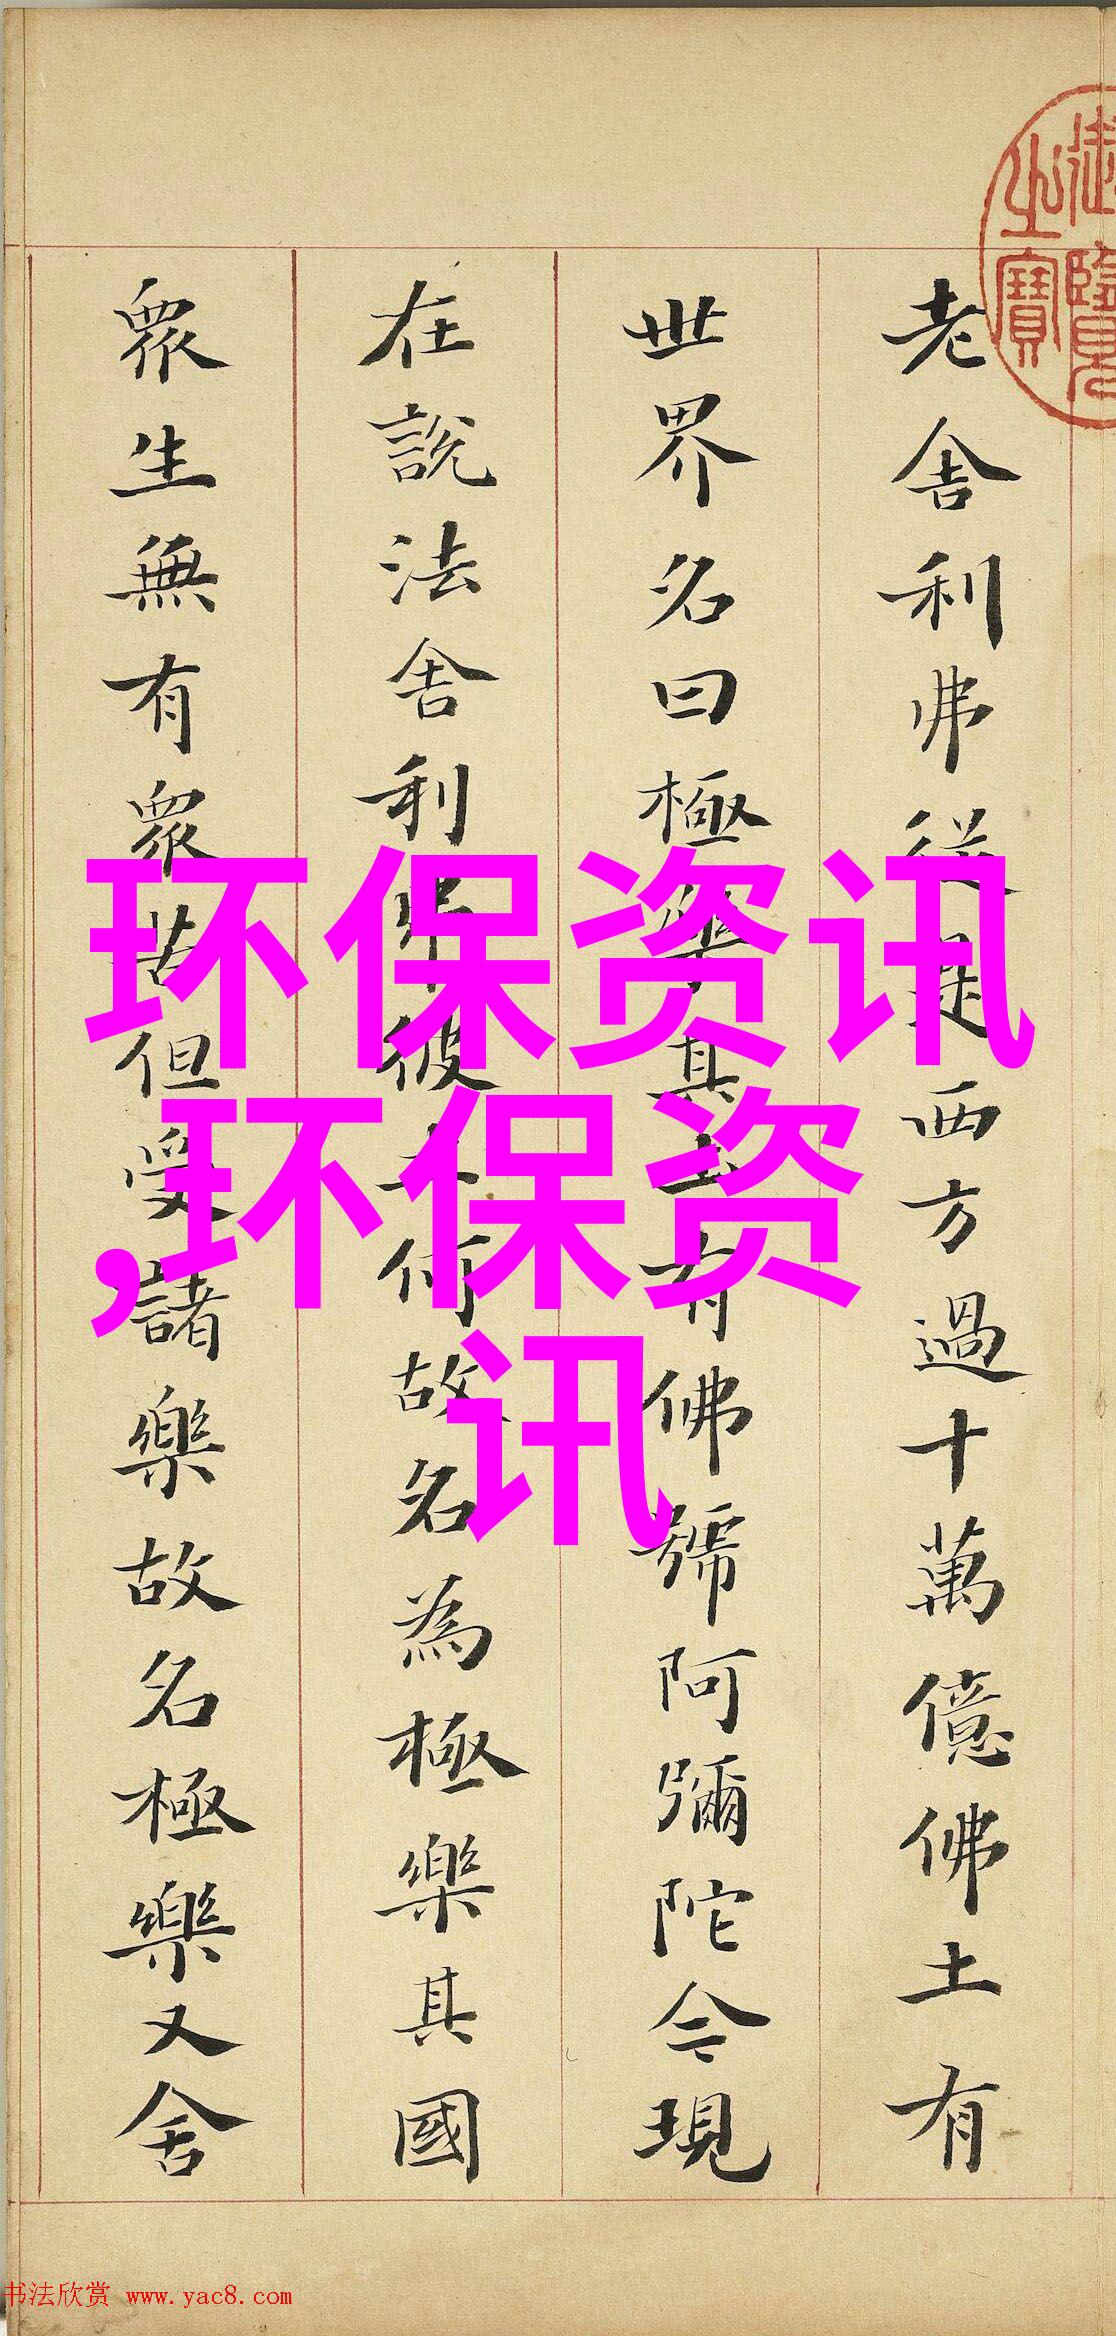 老舍利弗從是西方過十萬億佛土有
世界名曰極樂其土有佛號阿彌陀今現
在說法舍利弗彼土何故名為極樂其國
眾生無有眾苦但受諸樂故名極樂又舍
御覽之寶
环保资讯
,环保资
讯
书法欣赏 www.yac8.com